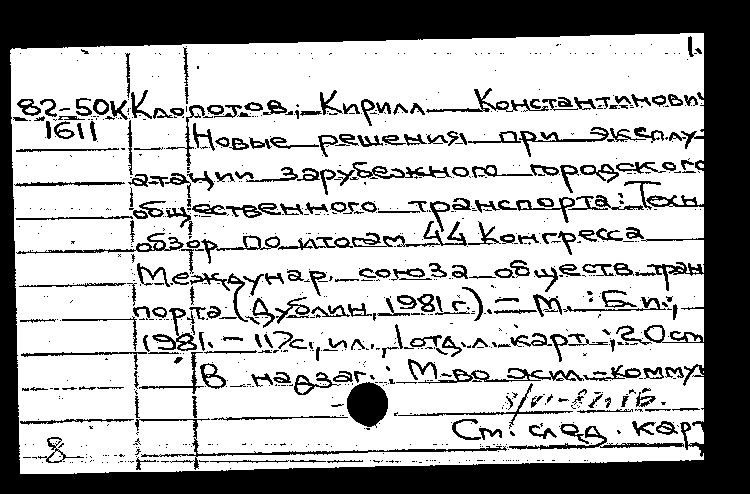 1.
82-50К Клопотов, Кирилл Константинович
1611 Новые решения при эксплу-
атации зарубежного городского
общественного транспорта: Техн.
обзор по итогам 44 Конгресса
Междунар. союза обществ. тран
порта (Дублин, 1981 г.). - М. : Б.и.,
1981. - 117с., ил., 1 отд. л. карт. ; 20 см
В надзаг.: М-во жил.-комму
См. след. карт
8